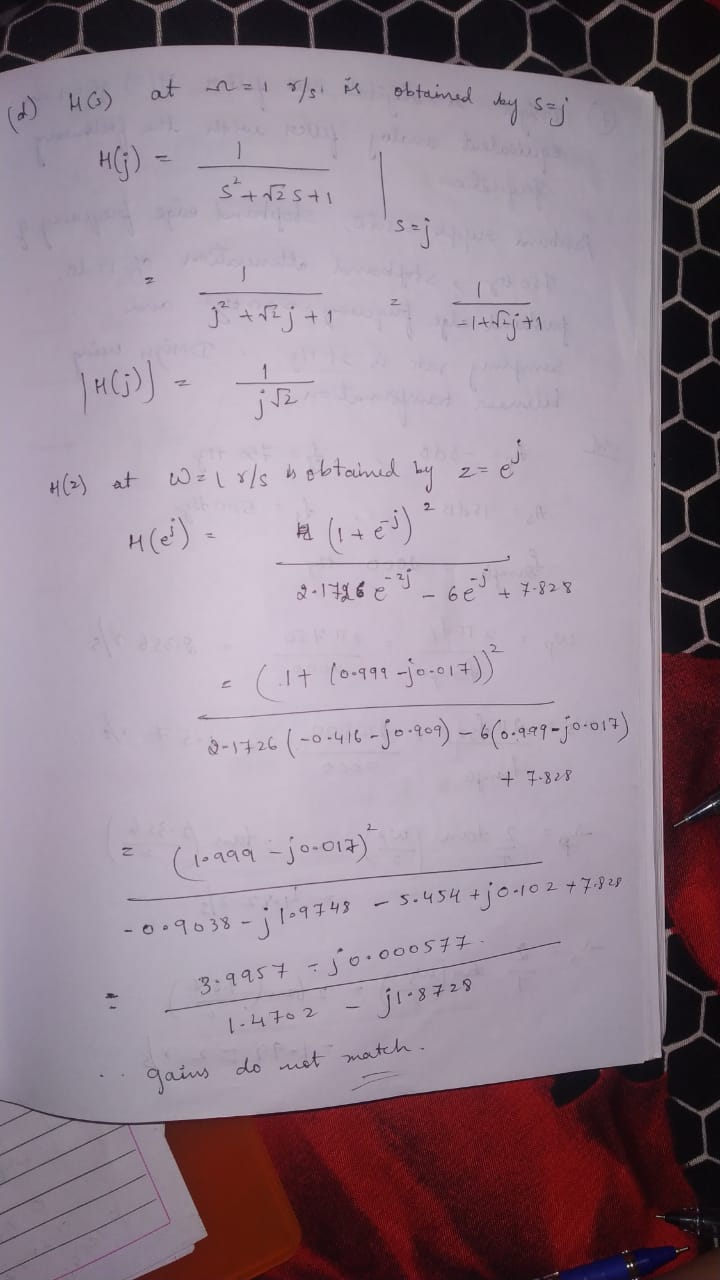 (d) H(s) at Ω = 1 r/s is obtained by s=j
H(j) = 1 / (s² + √2 s + 1) |s=j
= 1 / (j² + √2 j + 1) = 1 / (-1 + √2 j + 1)
|H(j)| = 1 / (j√2)
H(z) at W = 1 r/s is obtained by z = e^j
H(e^j) = (1 + e^-j)² / (2.1726 e^-2j - 6e^-j + 7.828)
= (1 + (0.999 - j0.017))² / (2.1726 (-0.416 - j0.909) - 6(0.999 - j0.017) + 7.828)
= (1.999 - j0.017)² / (-0.9038 - j1.9748 - 5.454 + j0.102 + 7.828)
= (3.9957 - j0.000577) / (1.4702 - j1.8728)
∴ gains do not match.